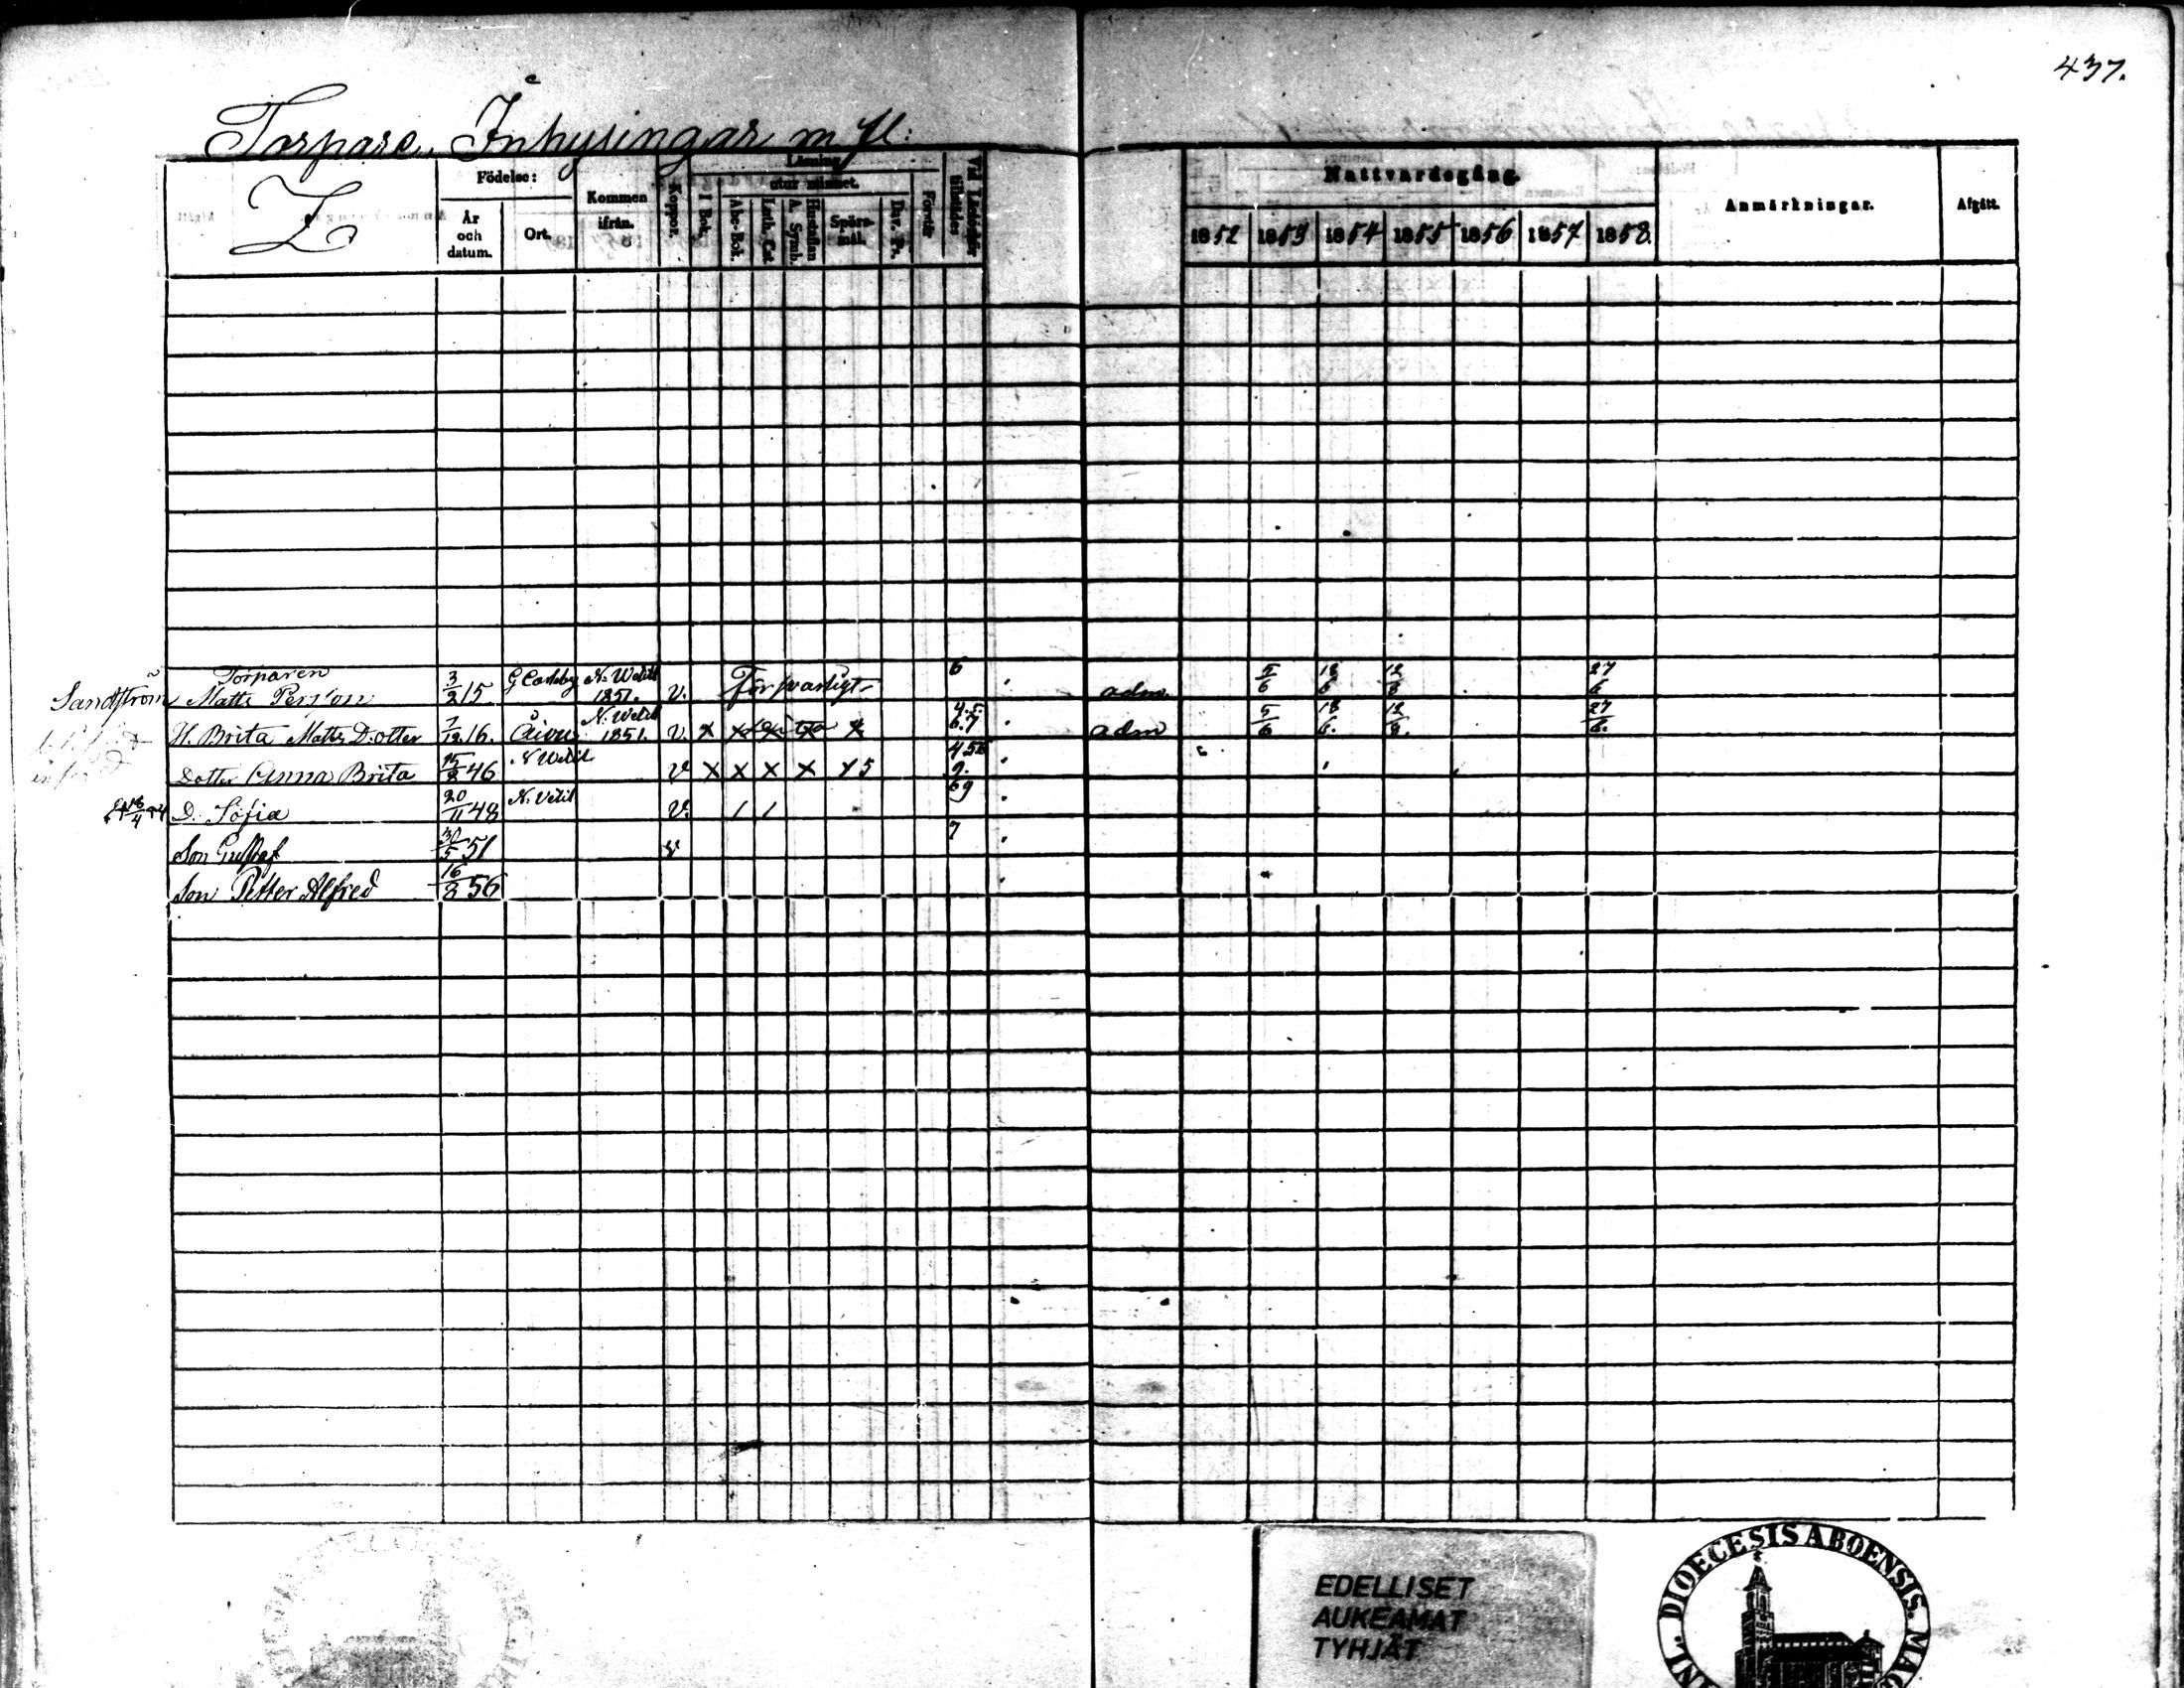 437.
Torpare, Inhysingar m fl:
Z
Födelse:
År och datum.
Ort.
Kommen ifrån.
Koppor.
Läsning
utur minnet.
I Bok.
Abc-Bok.
Luth. Cat
A. Symb.
Hustaflan
Spörsmål.
Dav. Ps.
Förstår
Vid Läsförhör tillstädes
Nattvardsgång.
1852 1853 1854 1855 1856 1857 1858.
Anmärkningar.
Afgått.
Torparen
Sandström Matts Persson 3/2 15 G Carleby N. Wetil 1851. v. Försvarligt 6 adm. 5/6 18/6 12/8 27/6
H. Brita Matts D:otter 7/12 16. N. Wetil 1851. v. x x x x 4.5. 6.7 adm 5/6 18/6. 12/8. 27/6.
Dotter Anna Brita 15/8 46 N Wetil v x x x x x 5 456 9.
D. Sofia 20/11 48 N. Vetil v. / / 69
Son Gustaf 30/5 51 v 7
Son Petter Alfred 16/8 56
EDELLISET
AUKEAMAT
TYHJÄT
DIOECESIS ABOENSIS.